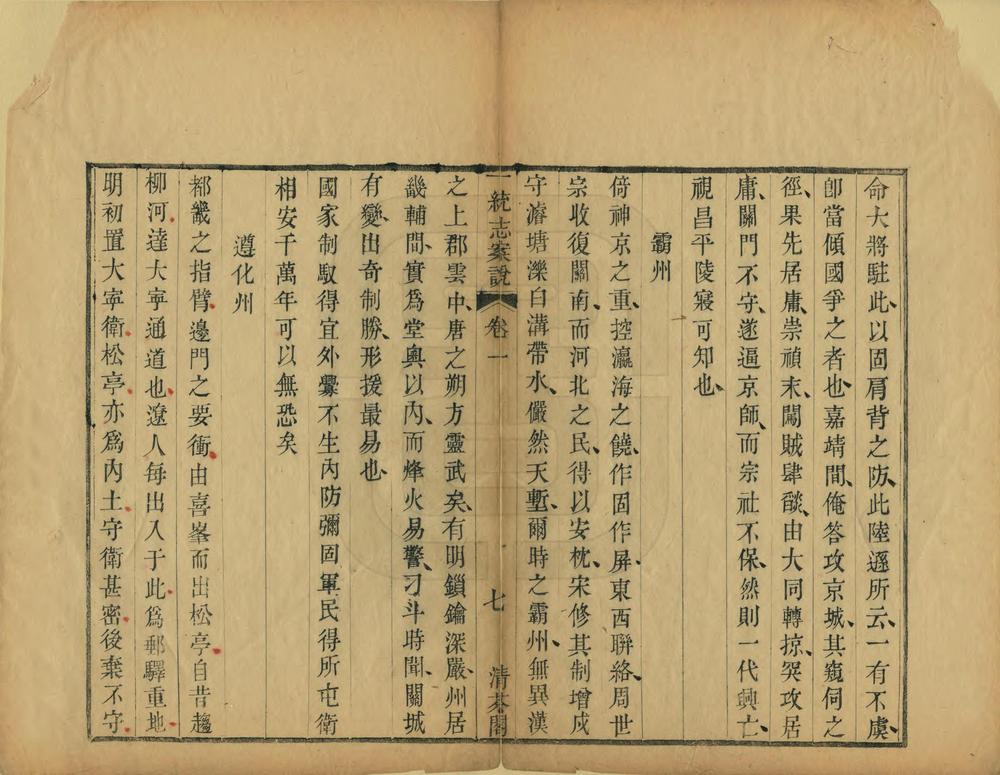 命大將駐此以固肩背之防此陸遜所云一有不虞
卽當傾國爭之者也嘉靖間俺答攻京城其窺伺之
徑果先居庸崇禎末闖賊肆燄由大同轉掠突攻居
庸關門不守遂逼京師而宗社不保然則一代興亡
視昌平陵寢可知也
霸州
倚神京之重控瀛海之饒作固作屏東西聯絡周世
宗收復關南而河北之民得以安枕宋修其制增戍
守濬塘濼白溝帶水儼然天塹爾時之霸州無異漢
一統志案說 卷一 七 清芬閣
之上郡雲中唐之朔方靈武矣有明鎖鑰深嚴州居
畿輔間實爲堂奧以內而烽火易警刁斗時聞關城
有變出奇制勝形援最易也
國家制馭得宜外釁不生內防彌固軍民得所屯衛
相安千萬年可以無恐矣
遵化州
都畿之指臂邊門之要衝由喜峯而出松亭自昔趨
柳河達大寧通道也遼人每出入于此爲郵驛重地
明初置大寧衛松亭亦爲內土守衛甚密後棄不守